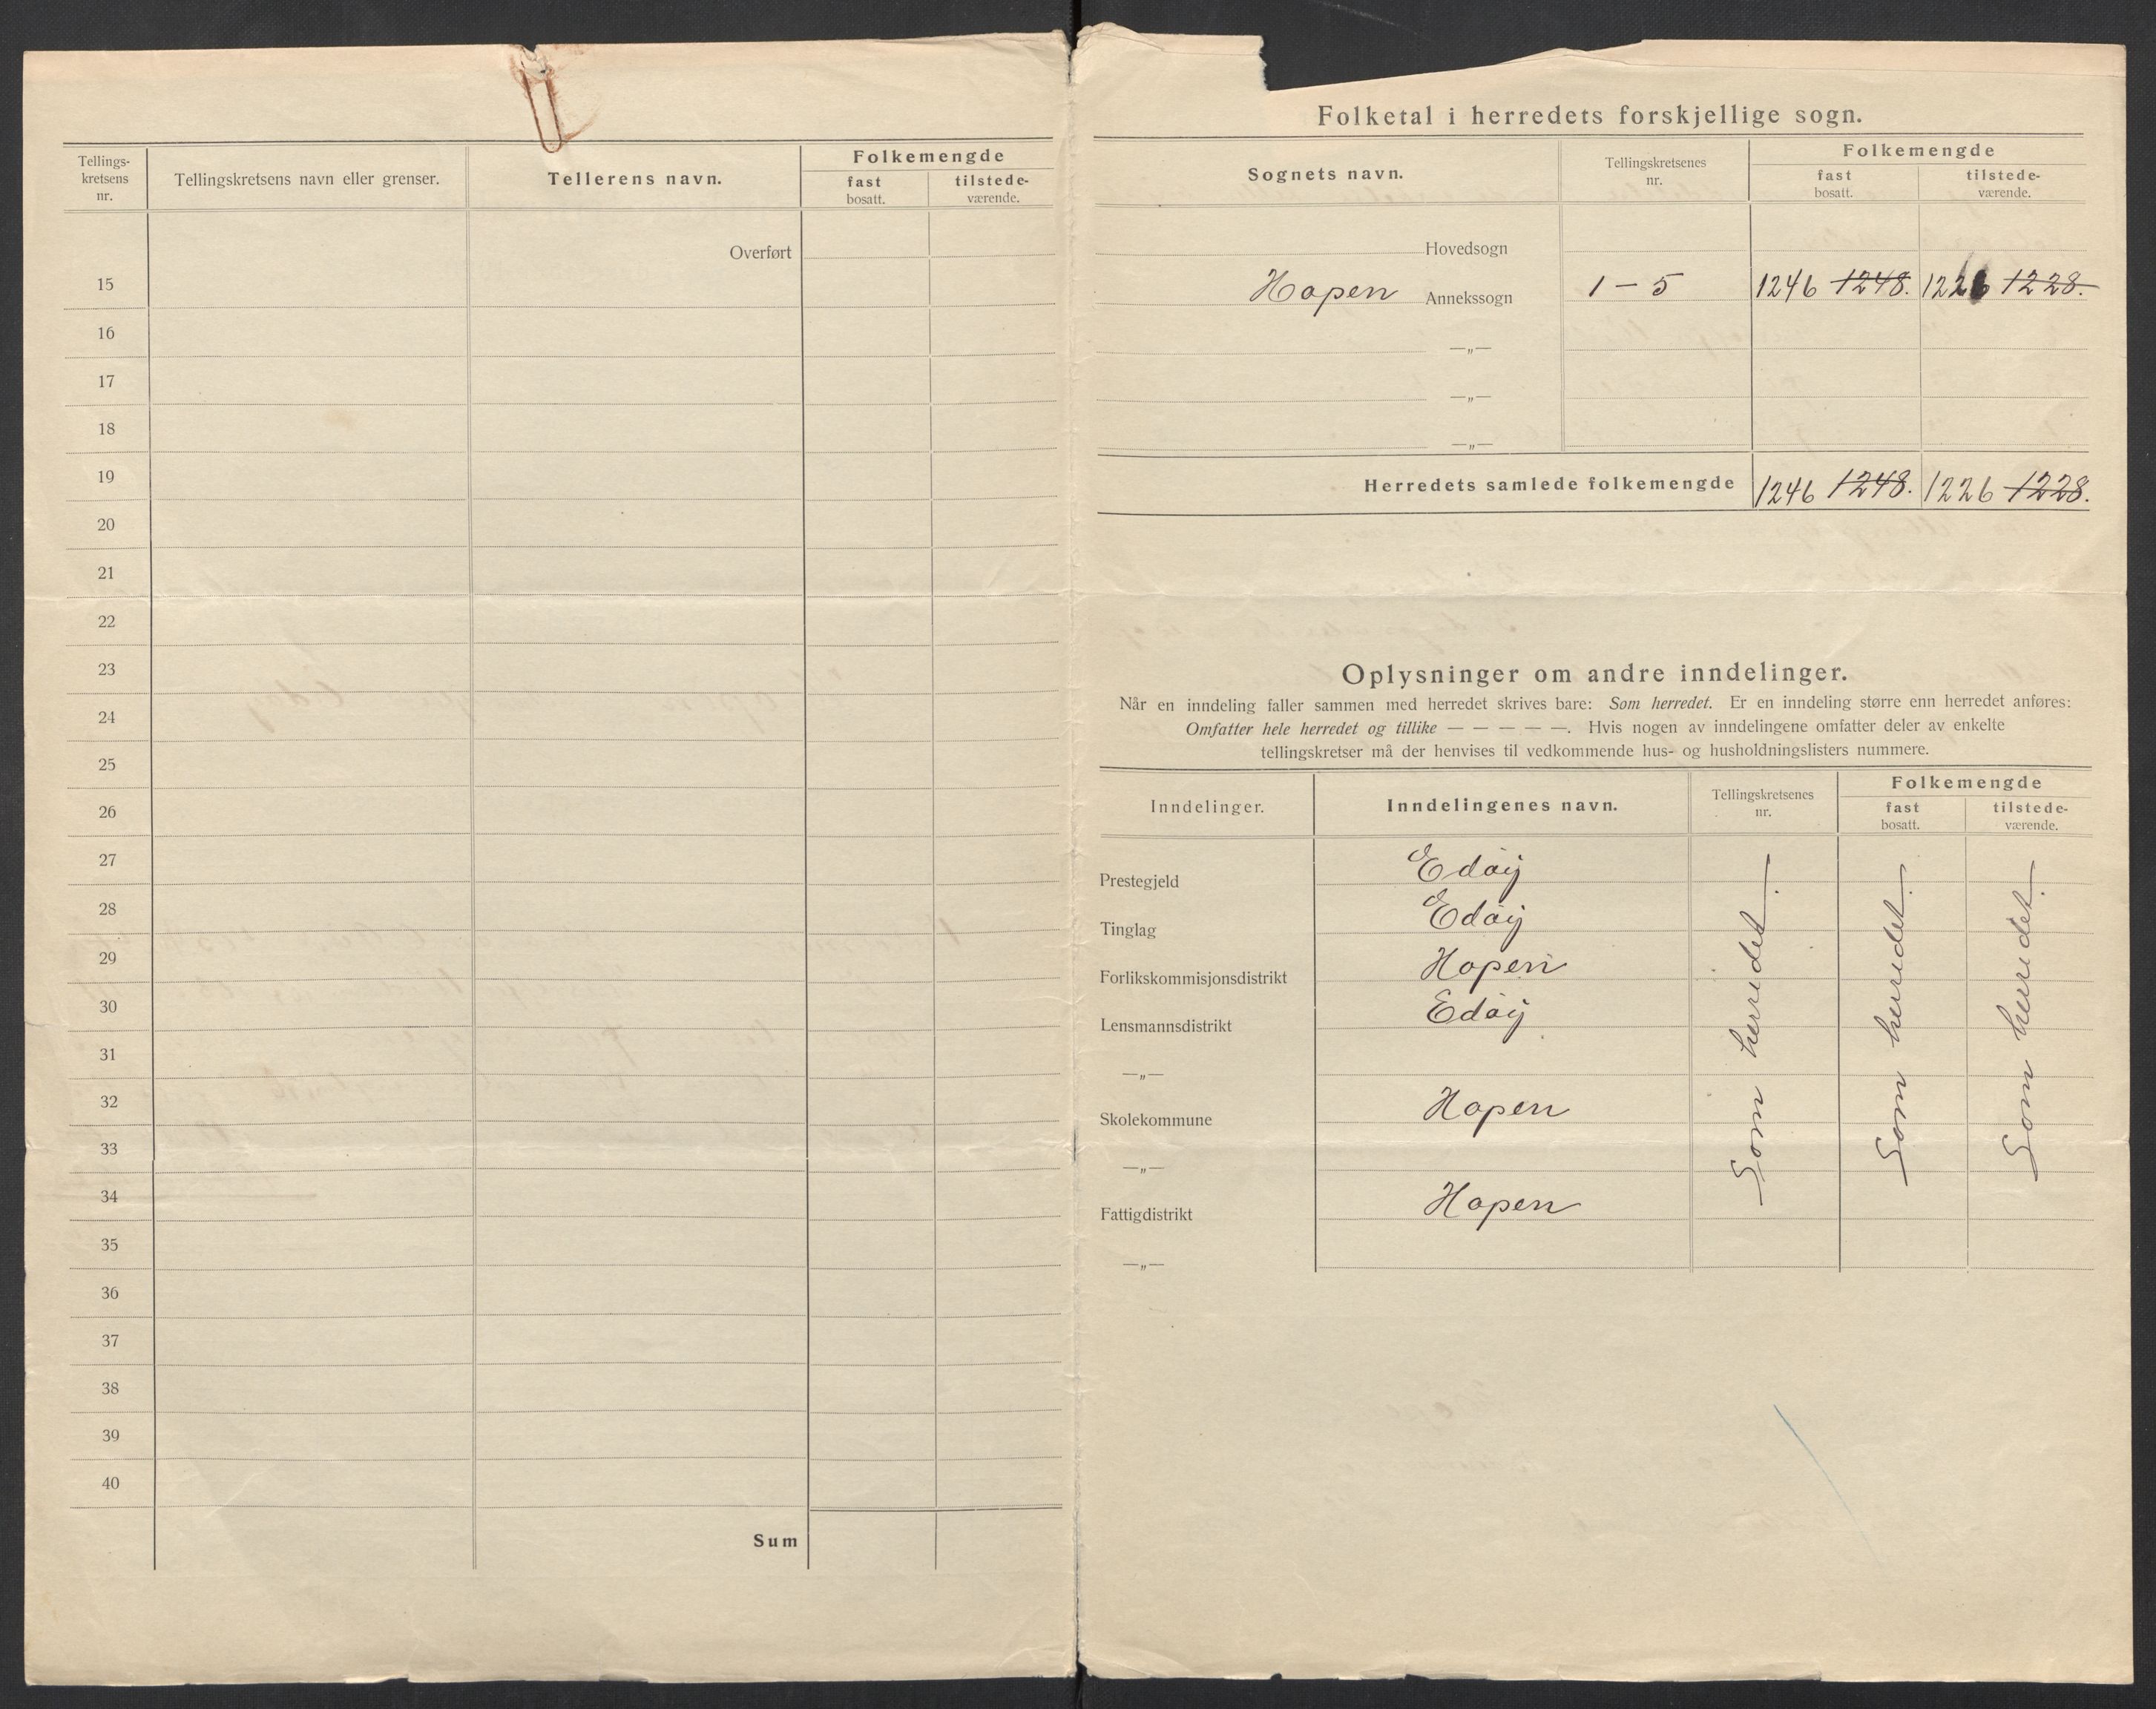 Tellings-
kretsens
nr.
Tellingskretsens navn eller grenser.
Tellerens navn.
Folkemengde
fast
bosatt.
tilstede-
værende.
Overført
15
16
17
18
19
20
21
22
23
24
25
26
27
28
29
30
31
32
33
34
35
36
37
38
39
40
Sum
Folketal i herredets forskjellige sogn.
Sognets navn.
Tellingskretsenes
nr.
Folkemengde
fast
bosatt.
tilstede-
værende.
Hovedsogn
Hopen Annekssogn 1-5 1246 1248. 1226 1228.
—„—
—„—
—„—
Herredets samlede folkemengde 1246 1248. 1226 1228.
Oplysninger om andre inndelinger.
Når en inndeling faller sammen med herredet skrives bare: Som herredet. Er en inndeling større enn herredet anføres:
Omfatter hele herredet og tillike — — — — —. Hvis nogen av inndelingene omfatter deler av enkelte
tellingskretser må der henvises til vedkommende hus- og husholdningslisters nummere.
Inndelinger.
Inndelingenes navn.
Tellingskretsenes
nr.
Folkemengde
fast
bosatt.
tilstede-
værende.
Prestegjeld Edøy
Tinglag Edøy
Forlikskommisjonsdistrikt Hopen
Lensmannsdistrikt Edøy
—„—
Skolekommune Hopen
—„—
Fattigdistrikt Hopen
—„—
Som herredet.
Som herredet.
Som herredet.